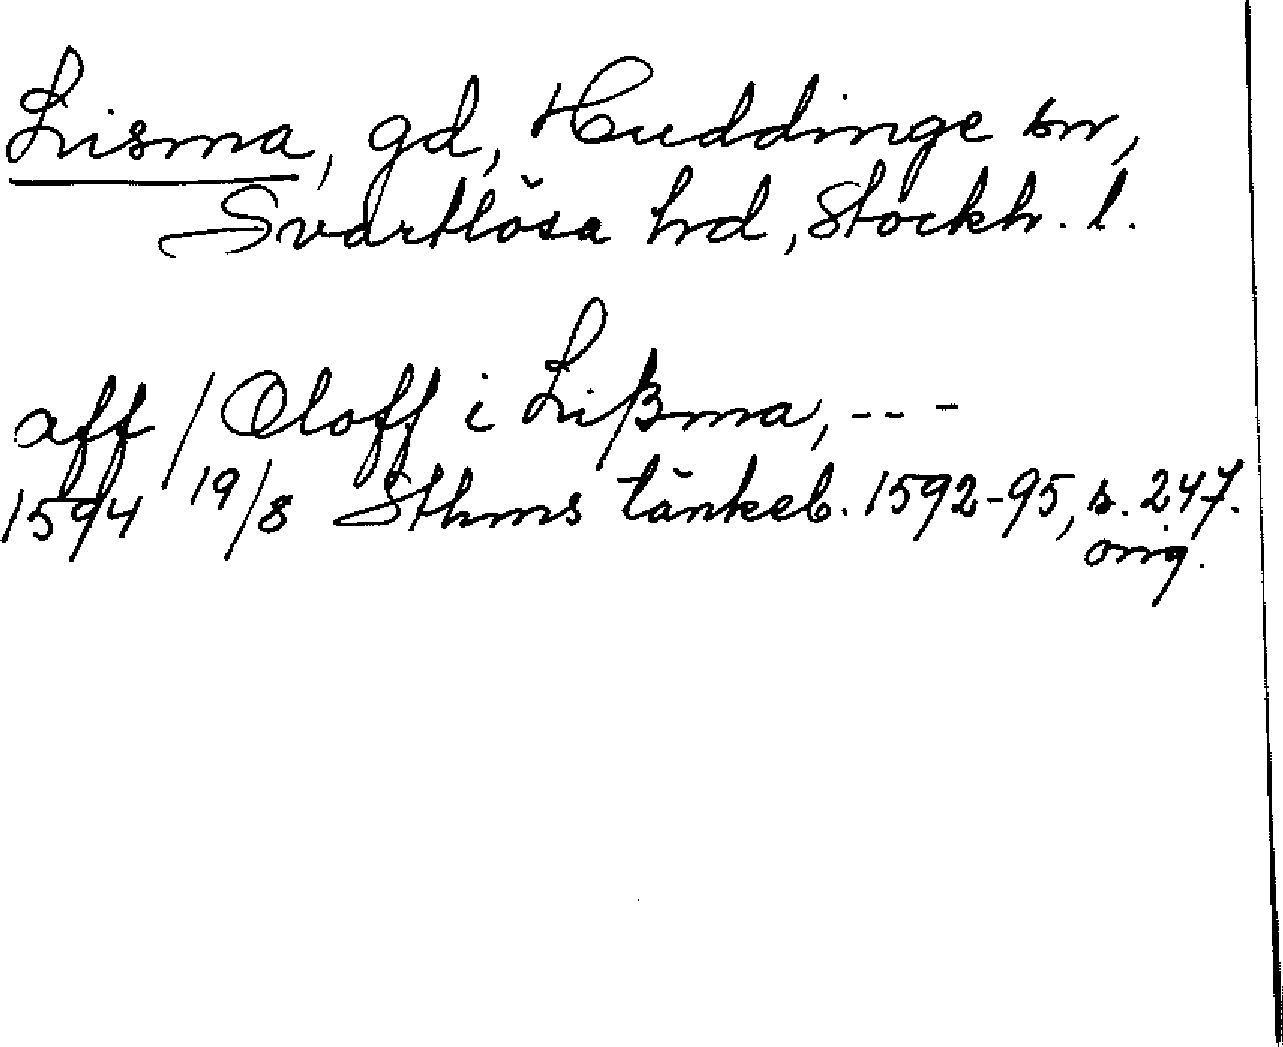 Lisma, gd, Huddinge sn,
Svartlösa hd, Stockh. l.
aff / Oloff i Lißma, - - -
1594 19/8 Sthms tänkeb. 1592-95, s. 247.
orig.